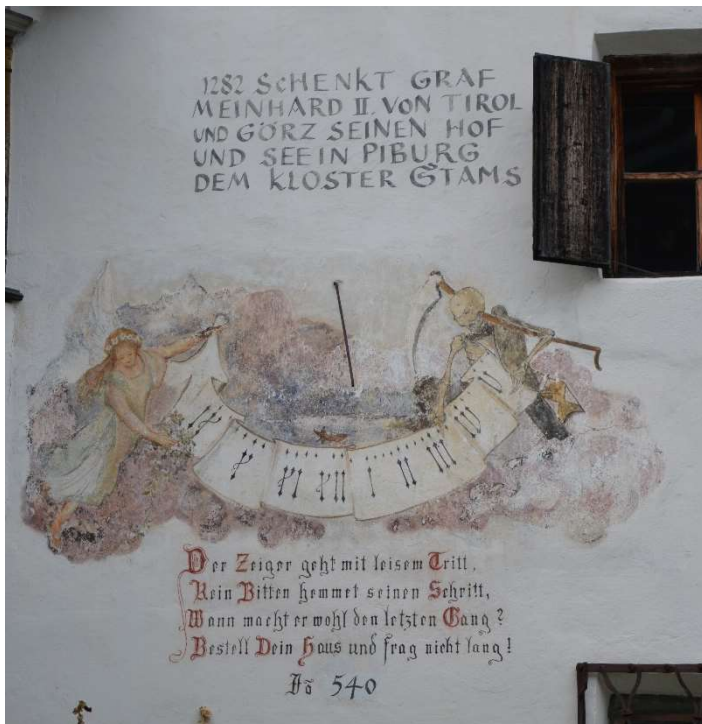 1282 SCHENKT GRAF
MEINHARD II. VON TIROL
UND GÖRZ SEINEN HOF
UND SEE IN PIBURG
DEM KLOSTER STAMS
IX X XI XII I II III IV V
Der Zeiger geht mit leisem Tritt,
Kein Bitten hemmet seinen Schritt,
Wann macht er wohl den letzten Gang?
Bestell Dein Haus und frag nicht lang!
540